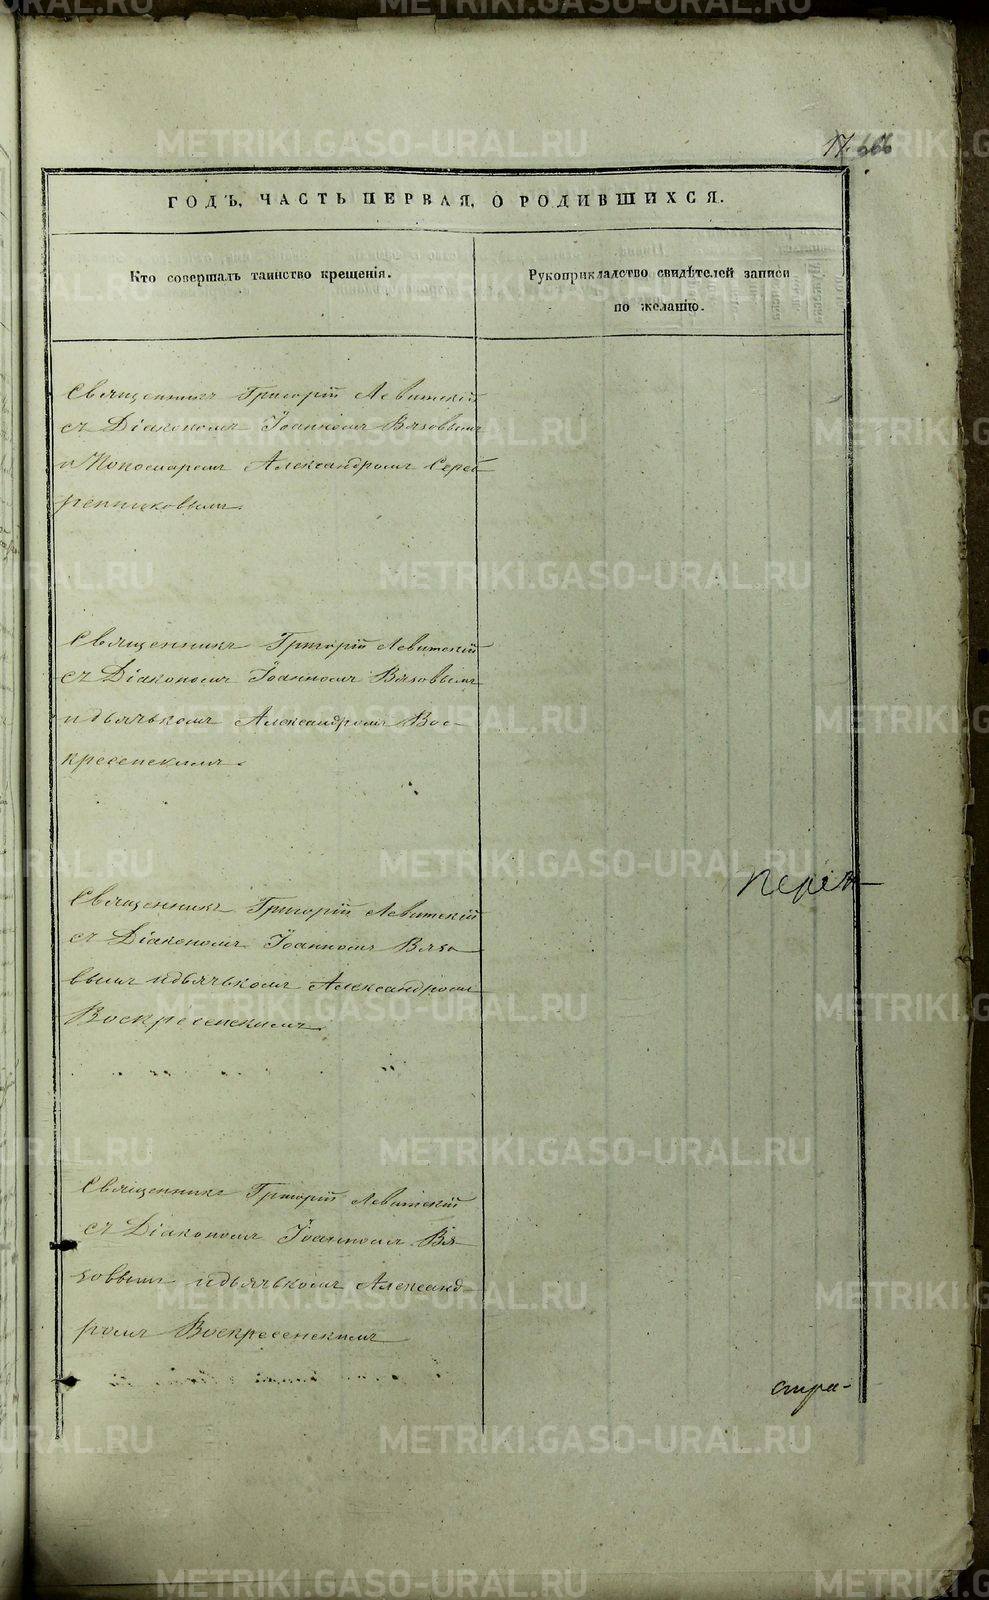 17.
ГОДЪ, ЧАСТЬ ПЕРВАЯ, О РОДИВШИХСЯ.
Кто совершалъ таинство крещенія.
Рукоприкладство свидѣтелей записи
по желанію.
Священникъ Григорій Левитскій
съ Діакономъ Іоанномъ Вязовымъ
и Пономаремъ Александромъ Сереб
ренниковымъ.
Священникъ Григорій Левитскій
съ Діакономъ Іоанномъ Вязовымъ
и дьячькомъ Александромъ Вос-
кресенскимъ.
Священникъ Григорій Левитскій
съ Діакономъ Іоанномъ Вязо
вымъ и дьячькомъ Александромъ
Воскресенскимъ
Священникъ Григорій Левитскій
съ Діакономъ Іоанномъ Вя-
зовымъ и дьячькомъ Александ-
ромъ Воскресенскимъ
стра-
METRIKI.GASO-URAL.RU